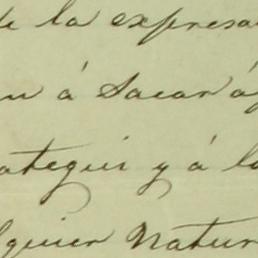 de la expresa
n á Sacar á
ategui y á la
lquier Natur